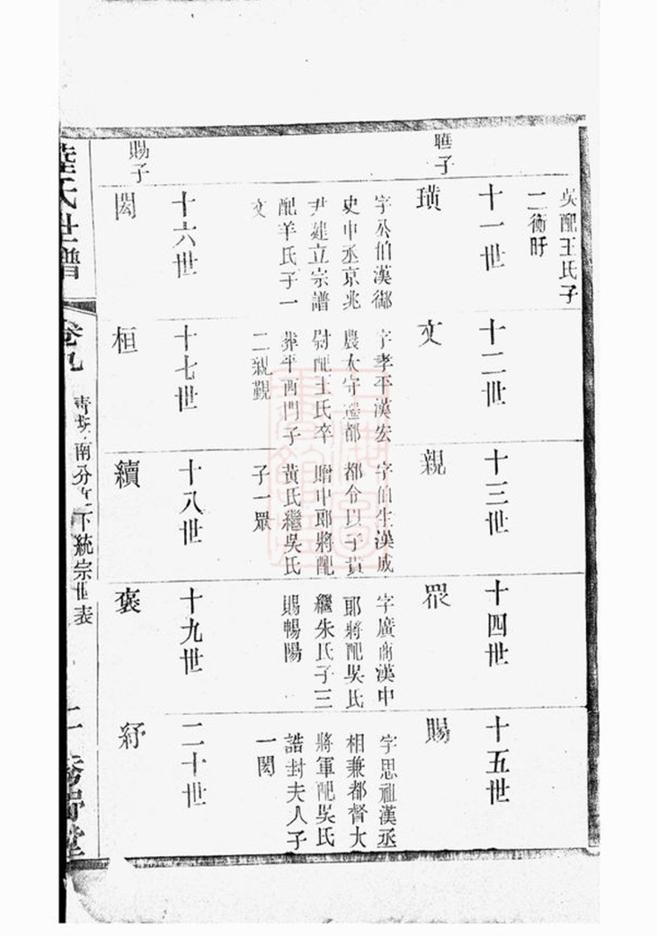 吳配王氏子
二衡盱
十一世
十二世
十三世
十四世
十五世
璜
文
親
眾
賜
字公伯漢御
史中丞京兆
尹建立宗譜
配羊氏子一
文
字孝平漢宏
農太守遷都
尉配王氏卒
葬平西門子
二親觀
字伯生漢成
都令以子貴
贈中郎將配
黃氏繼吳氏
子一眾
字廣南漢中
郎將配吳氏
繼朱氏子三
賜暢陽
字思祖漢丞
相兼都督大
將軍配吳氏
誥封夫人子
一閎
十六世
十七世
十八世
十九世
二十世
賜子
閎
桓
續
褒
紓
陸氏世譜
卷九
南分
下統宗世表
二